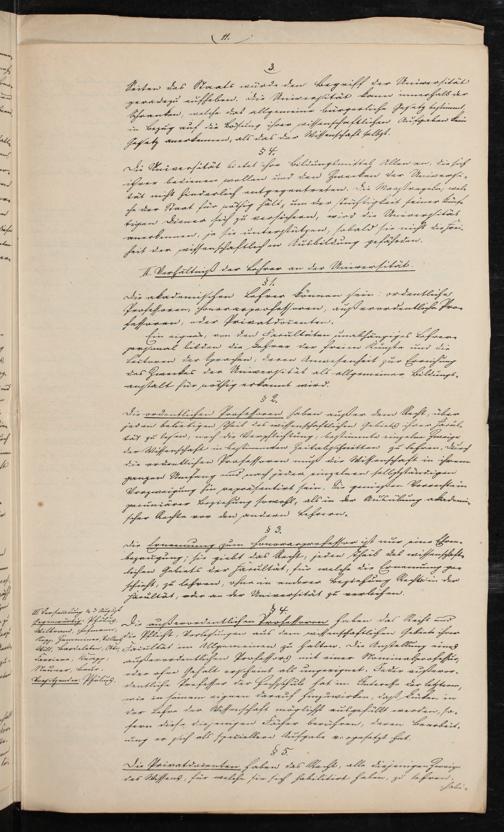 11.
3.
Seiten des Staats würde den Begriff der Universität
geradezu aufheben. Die Universität kann innerhalb der
Schranken, welche das allgemeine bürgerliche Gesetz bestimmt,
in Bezug auf die Lösung ihrer wissenschaftlichen Aufgaben kein
Gesetz anerkennen, als das der Wissenschaft selbst.
§ 4.
Die Universität bietet ihre Bildungsmittel Allen an, die sich
ihrer bedienen wollen und den Zwecken der Universi-
tät nicht hinderlich entgegentreten. Die Maasregeln, wel-
che der Staat für nöthig hält, um der Tüchtigkeit seiner künf-
tigen Diener sich zu versichern, wird die Universität
anerkennen, ja sie unterstützen, sobald sie nicht die Frei-
heit der wissenschaftlichen Ausbildung gefährden.
II. Verhältniß der Lehrer an der Universität.
§ 1.
Die akademischen Lehrer können sein: ordentliche
Professoren, Honorarprofessoren, außerordentliche Pro-
fessoren, oder Privatdocenten.
Ein eignes, von den Facultäten unabhängiges Lehrer-
personal bilden die Lehrer der freien Künste und die
Lectoren der Sprachen, deren Anwesenheit zur Erreichung
des Zweckes der Universität als allgemeiner Bildungs-
anstalt für nöthig erkannt wird.
§ 2.
Die ordentlichen Professoren haben außer dem Recht, über
jeden beliebigen Theil des wissenschaftlichen Gebiets ihrer Facul-
tät zu lesen, noch die Verpflichtung, bestimmte einzelne Zweige
der Wissenschaft in bestimmten Zeitabschnitten zu lehren; durch
die ordentlichen Professoren muß die Wissenschaft in ihrem
ganzen Umfang und nach jeder einzelnen selbstständigen
Verzweigung hin repräsentirt sein. Sie genießen Vorrechte in
pecuniärer Beziehung sowohl, als in der Ausübung akademi-
scher Rechte vor den andern Lehrern.
§ 3.
Die Ernennung zum Honorarprofessor ist nur eine Ehren-
bezeugung; sie giebt das Recht, jeden Theil des wissenschaft-
lichen Gebiets der Facultät, für welche die Ernennung ge-
schieht, zu lehren, ohne in anderer Beziehung Rechte in der
Facultät, oder an der Universität zu verleihen.
§ 4.
Die außerordentlichen Professoren haben das Recht und
die Pflicht, Vorlesungen aus dem wissenschaftlichen Gebiete ihrer
Facultät im Allgemeinen zu halten. Die Anstellung eines
außerordentlichen Professors mit einer Nominalprofessur,
oder ohne Gehalt erscheint als ungeeignet. Jeder außeror-
dentliche Professor der Hochschule hat im Interesse der letztern,
wie in seinem eignen darauf hinzuwirken, daß Lücken in
der Lehre der Wissenschaft möglichst ausgefüllt werden, so-
fern diese diejenigen Fächer berühren, deren Bearbeit-
ung er sich als speciellere Aufgabe gesetzt hat.
§ 5.
Die Privatdocenten haben das Recht, alle diejenigen Zweige
des Wissens, für welche sie sich habilitirt haben, zu lehren,